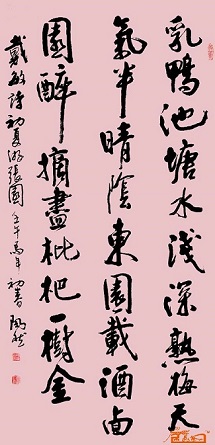 乳鴨池塘水淺深熟梅天
氣半晴陰東園載酒西
園醉摘盡枇杷一樹金
戴敏詩初夏游張園壬午馬年